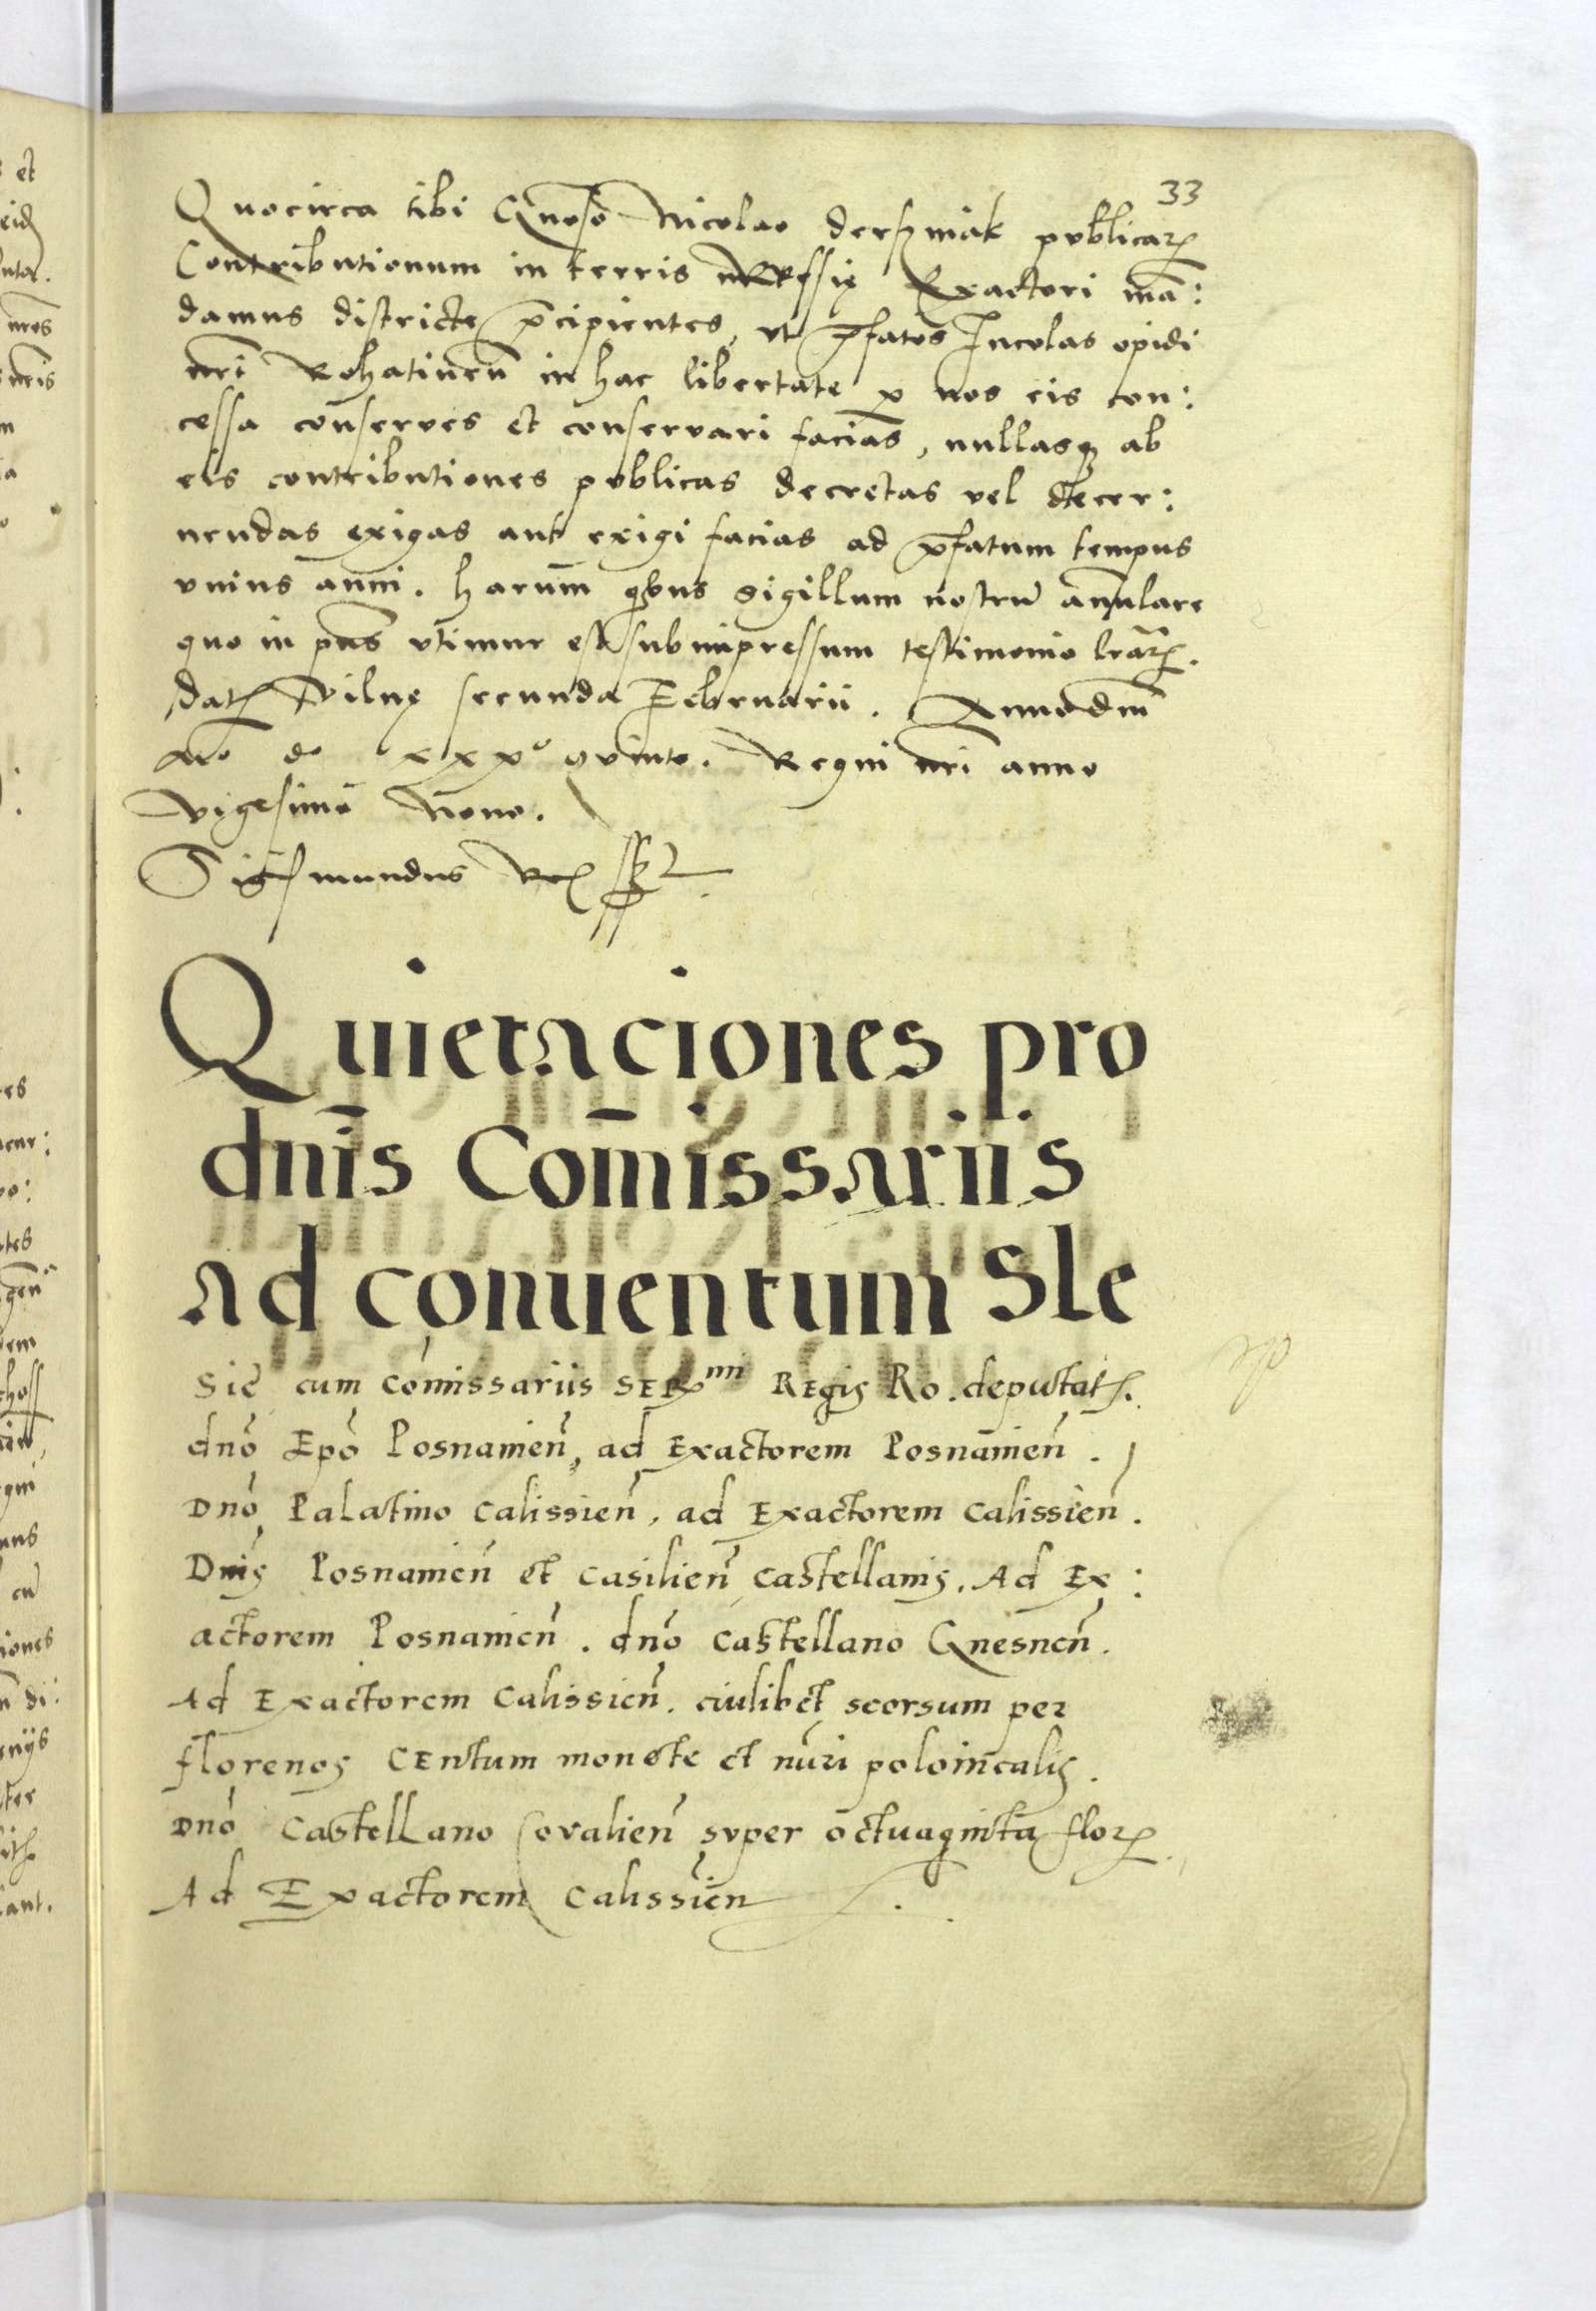 33
Quocirca tibi Gnoso Nicolao dersniak publicarꝫ
Contributionum in terris Russię Exactori mā:
damus districte p̄cipientes, ut p̄fatos Incolas opidi
nr̄i Rohatinen̄ in hac libertate ꝑ nos eis con:
cessa conserves et conservari facias, nullasqꝫ ab
eis contributiones publicas decretas vel decer:
nendas exigas aut exigi facias ad p̄fatum tempus
unius anni. harum qbus sigillum nostrū annulare
quo in pn̄s utimur est subimpressum testimonio lrārꝫ.
datꝫ Vilnę secunda Februarii. Anno dn̄i
Mo do xxxo quinto. Regni nr̄i anno
vigesimo Nono.
Sigismundus Rex sst
Quietaciones pro
dn̄is Com̄issariis
ad conuentum Sle
sie cum com̄issariis SERmi REgis Ro. deputatꝫ.
dn̄o Ep̄o Posnanien̄, ad Exactorem Posnanien̄.
Dn̄o Palatino Calissien̄, ad Exactorem Calissien̄.
Dn̄is Posnanien̄ et Casilien̄ Castellanis. Ad Ex:
actorem Posnanien̄. dn̄o Castellano Gnesnen̄.
Ad Exactorem Calissien̄. cuilibet seorsum per
florenos CEntum monete et nūri poloincalis.
Dn̄o CastelLano Covalien̄ super octuaginta florꝫ.
Ad Exactorem Calissien